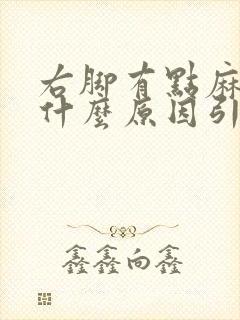 右脚有點麻
什麼原因引
鑫鑫向鑫